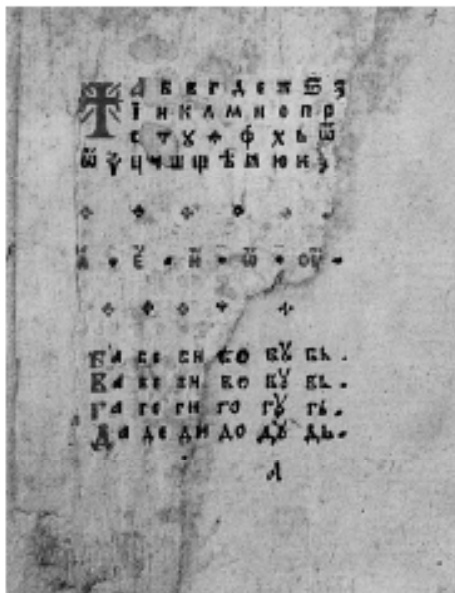 а б в г д е ж ѕ з
ї и к л м н о п р
с т ф х ь ѿ
ц ч ш щ ѣ ю
а • е • и • ѡ • оу •
ба бе би бо бꙋ бь.
ва ве ви во вꙋ вь.
га ге ги го гꙋ гь.
да де ди до дꙋ дь.